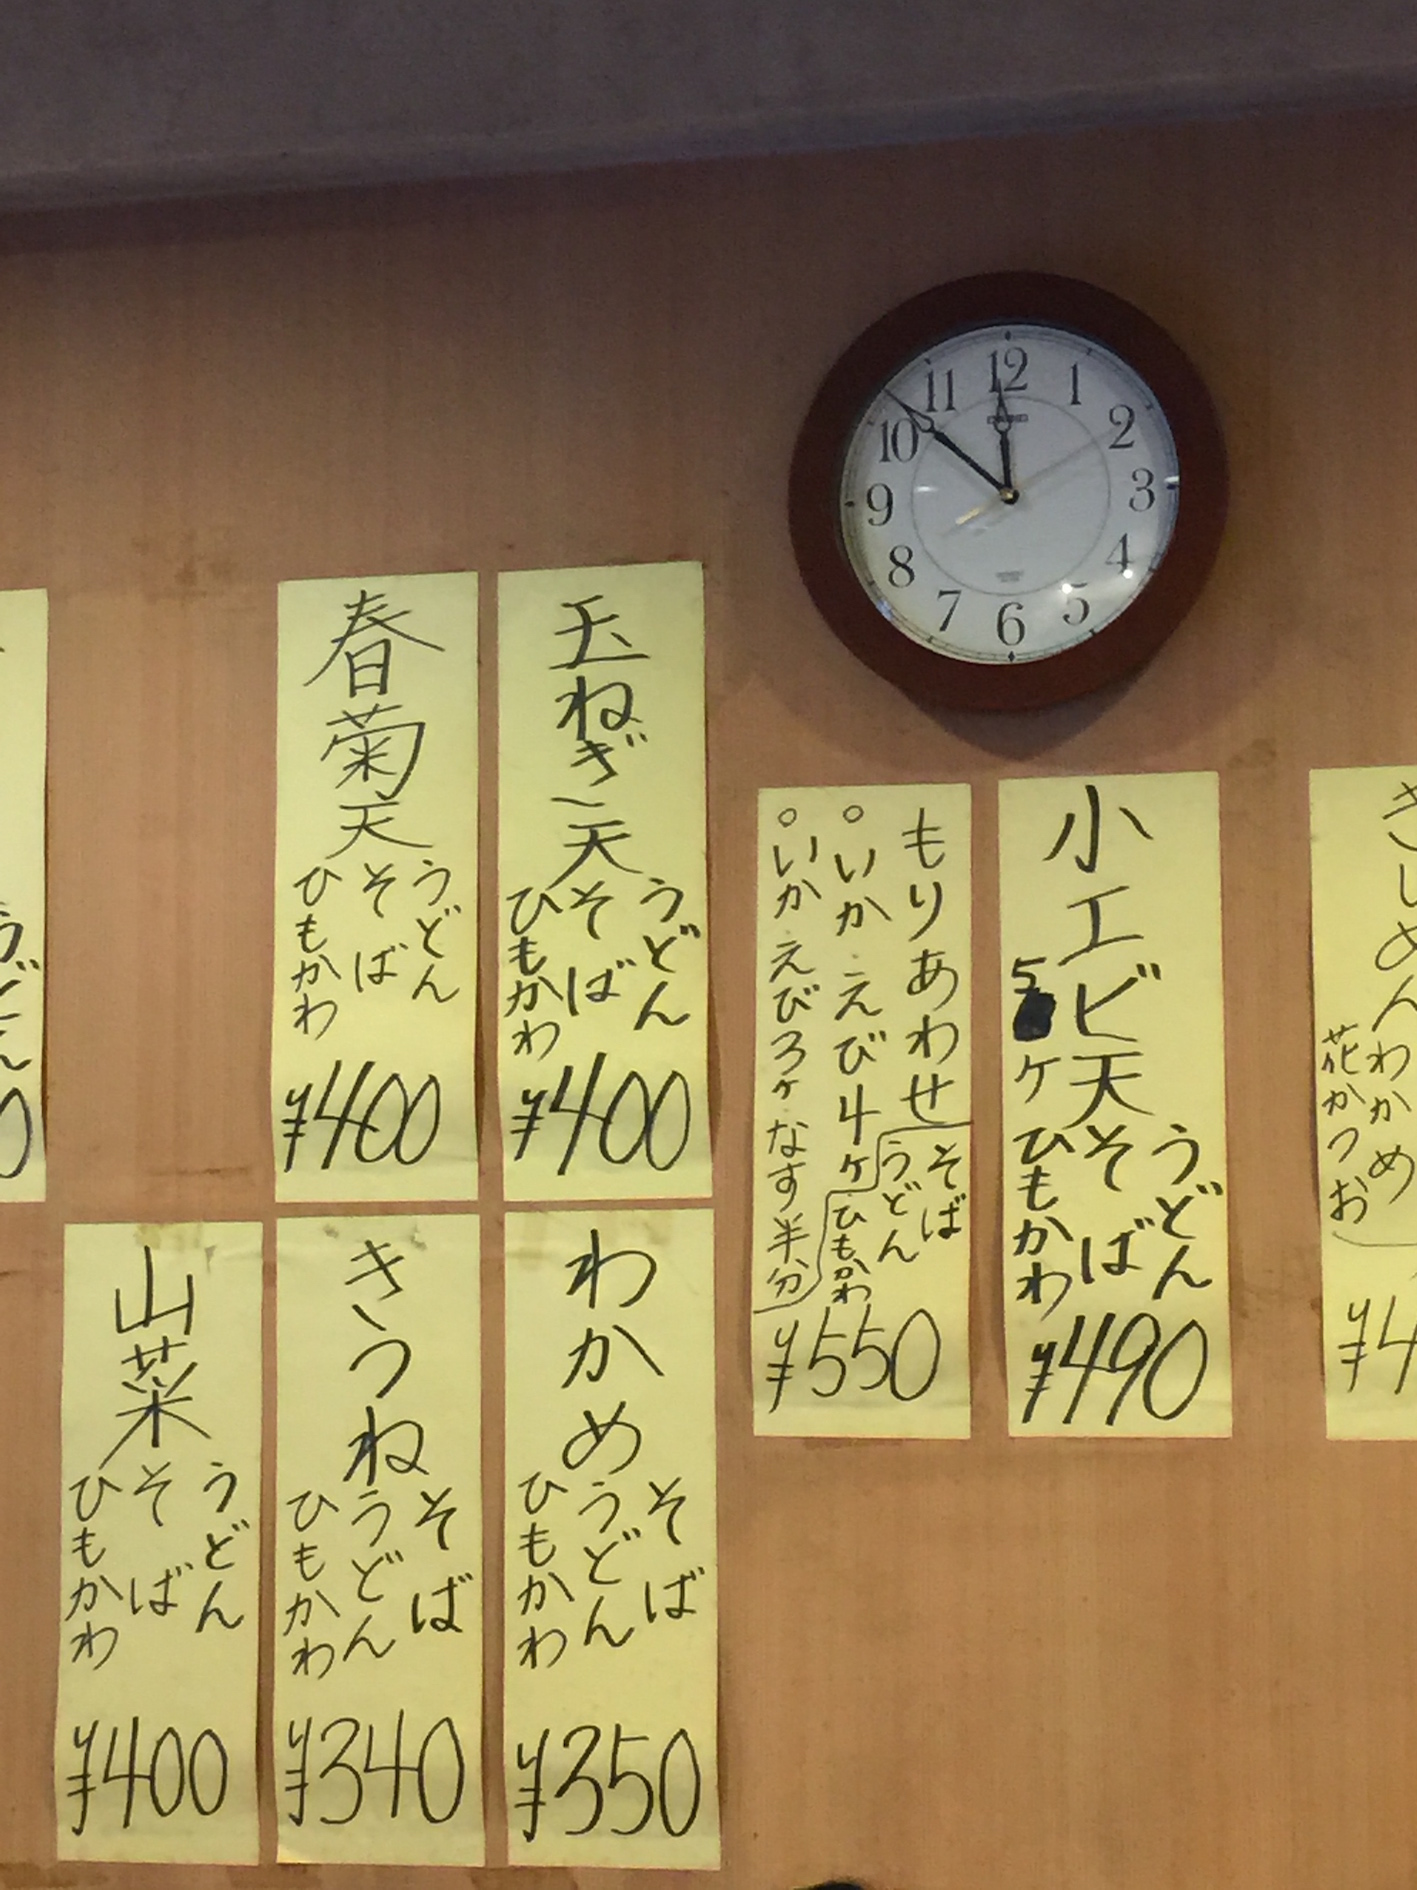 12
1
2
3
4
5
6
7
8
9
10
11
春菊天
うどん
そば
ひもかわ
¥400
玉ねぎ天
うどん
そば
ひもかわ
¥400
もりあわせ
そば
うどん
ひもかわ
○いか えび4ケ
○いか えび3ケ なす半分
¥550
小エビ天
5ケ
うどん
そば
ひもかわ
¥490
きしめん わかめ
花かつお
¥4
うどん
0
山菜
うどん
そば
ひもかわ
¥400
きつね
そば
うどん
ひもかわ
¥340
わかめ
そば
うどん
ひもかわ
¥350